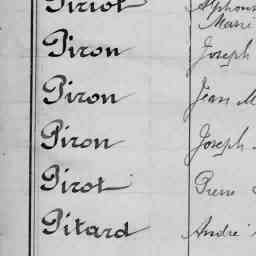 Piriot Alphons
Marie
Piron Joseph
Piron Jean M
Piron Joseph
Pirot Pierre
Pitard André